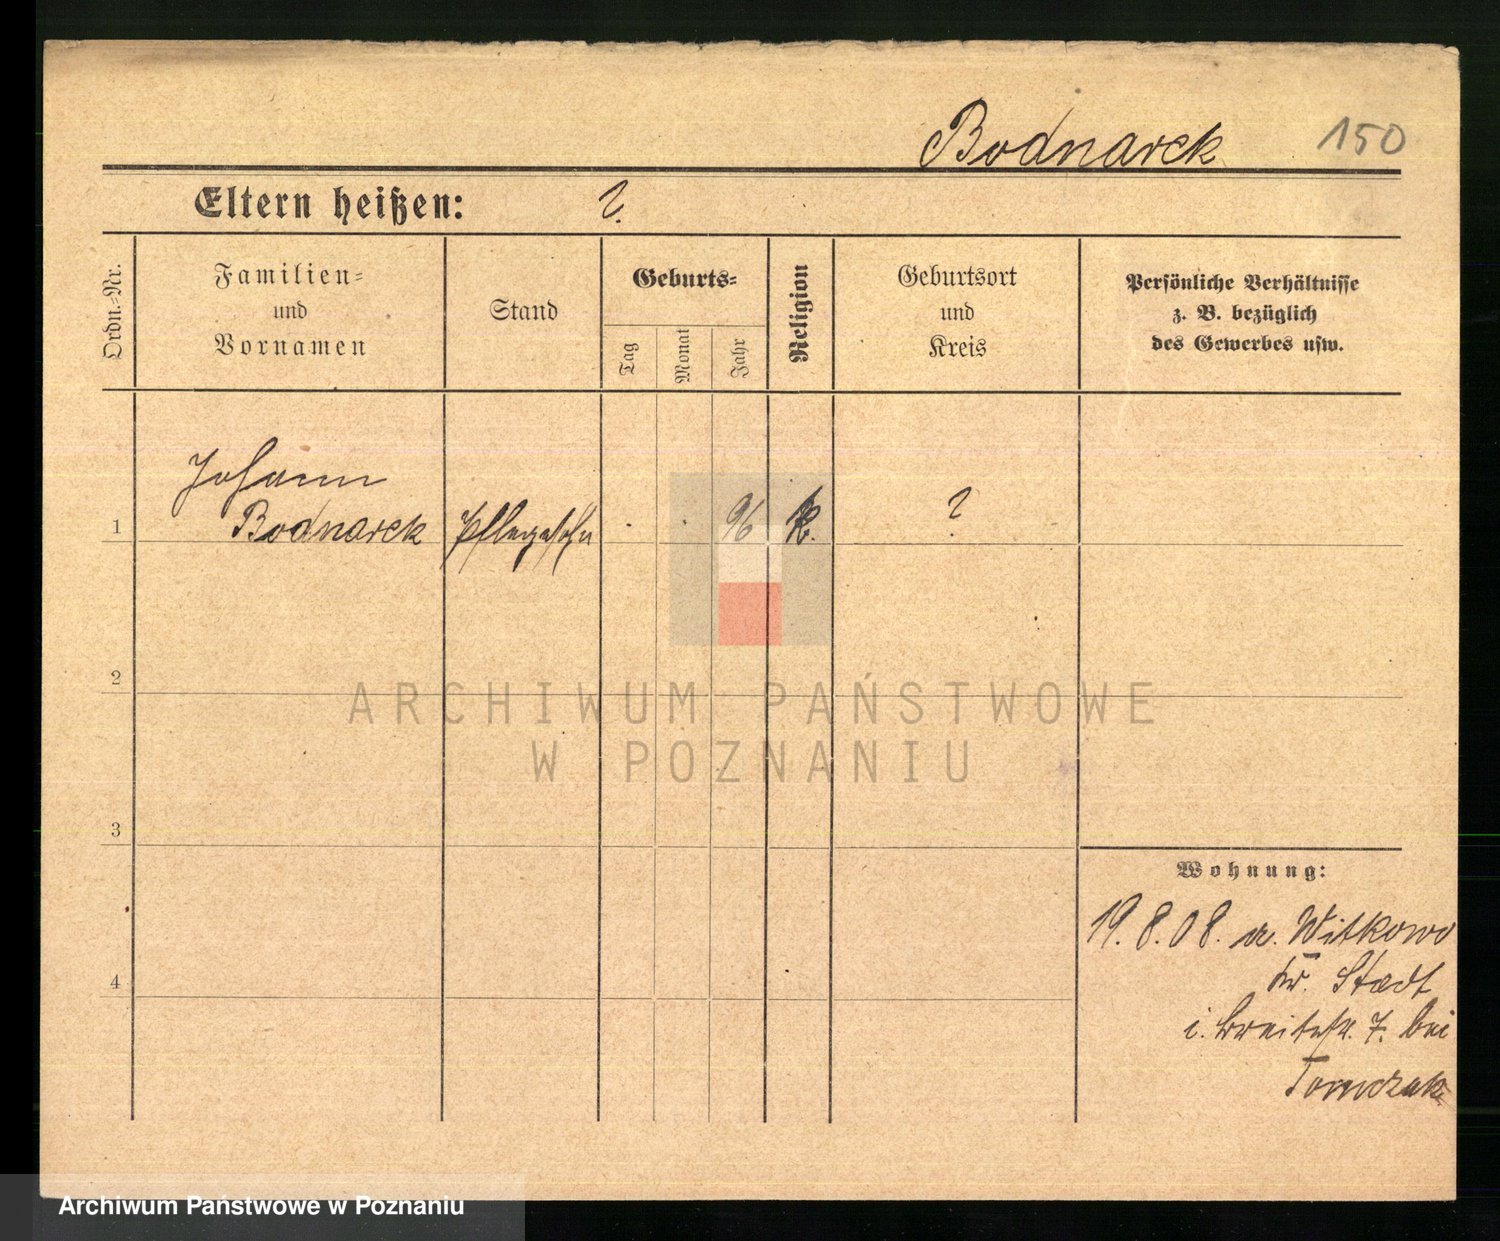 Bodnarek 150
Eltern heißen: ?
Ordn.=Nr.
Familien=
und
Vornamen
Stand
Geburts=
Tag
Monat
Jahr
Religion
Geburtsort
und
Kreis
Persönliche Verhältnisse
z. B. bezüglich
des Gewerbes usw.
Johann
1 Bodnarek Pflegesohn 96 K. ?
2
3
4
ARCHIWUM PAŃSTWOWE
W POZNANIU
Wohnung:
19.8.08. a. Witkowo
Kr. Stadt
i. Breitestr. 7. bei
Tomczak
Archiwum Państwowe w Poznaniu